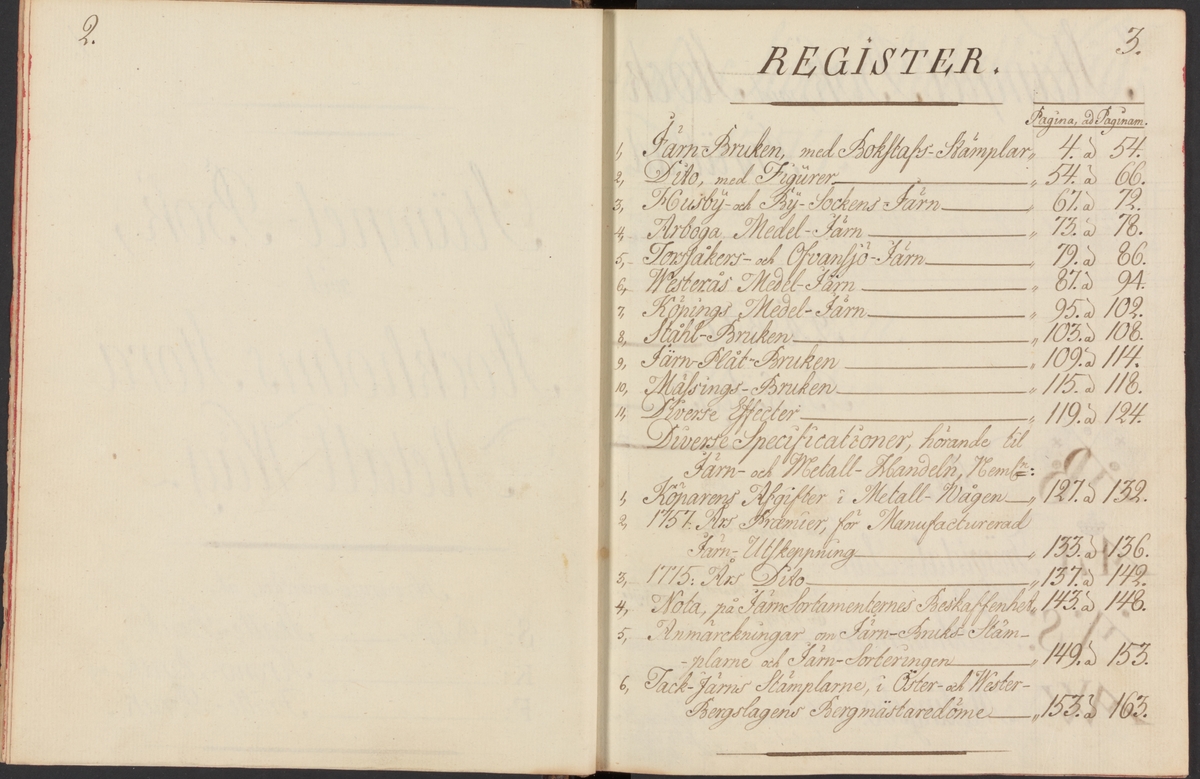 2.
3.
REGISTER.
Pagina, ad Paginam.
1, Järn Bruken, med Bokstafs-Stämplar „ 4. à 54.
2, Dito, med Figurer „ 54. à 66.
3, Husby- och By-Sockens Järn „ 67. à 72.
4, Arboga Medel-Järn „ 73. à 78.
5, Torsåkers- och Ofvansjö-Järn „ 79. à 86.
6, Westerås Medel-Järn „ 87. à 94.
7, Köpings Medel-Järn „ 95. à 102.
8, Ståhl-Bruken „ 103. à 108.
9, Järn-Plåt-Bruken „ 109. à 114.
10, Mässings-Bruken „ 115. à 118.
11, Diverse Effecter „ 119. à 124.
Diverse Specificationer, hörande til
Järn- och Metall-Handeln, Neml:
1, Köparens Afgifter i Metall-Wågen „ 127. à 132.
2, 1757. Års Præmier, för Manufacturerad
Järn-Utskeppning „ 133. à 136.
3, 1775. Års Dito „ 137. à 142.
4, Nota, på Järn Sortamenternes Beskaffenhet „ 143. à 148.
5, Anmärckningar om Järn-Bruks-Stäm-
-plarne och Järn-Sorteringen „ 149. à 153.
6, Tack-Järns Stämplarne, i Öster- och Wester-
Bergslagens Bergmästaredöme „ 153. à 163.